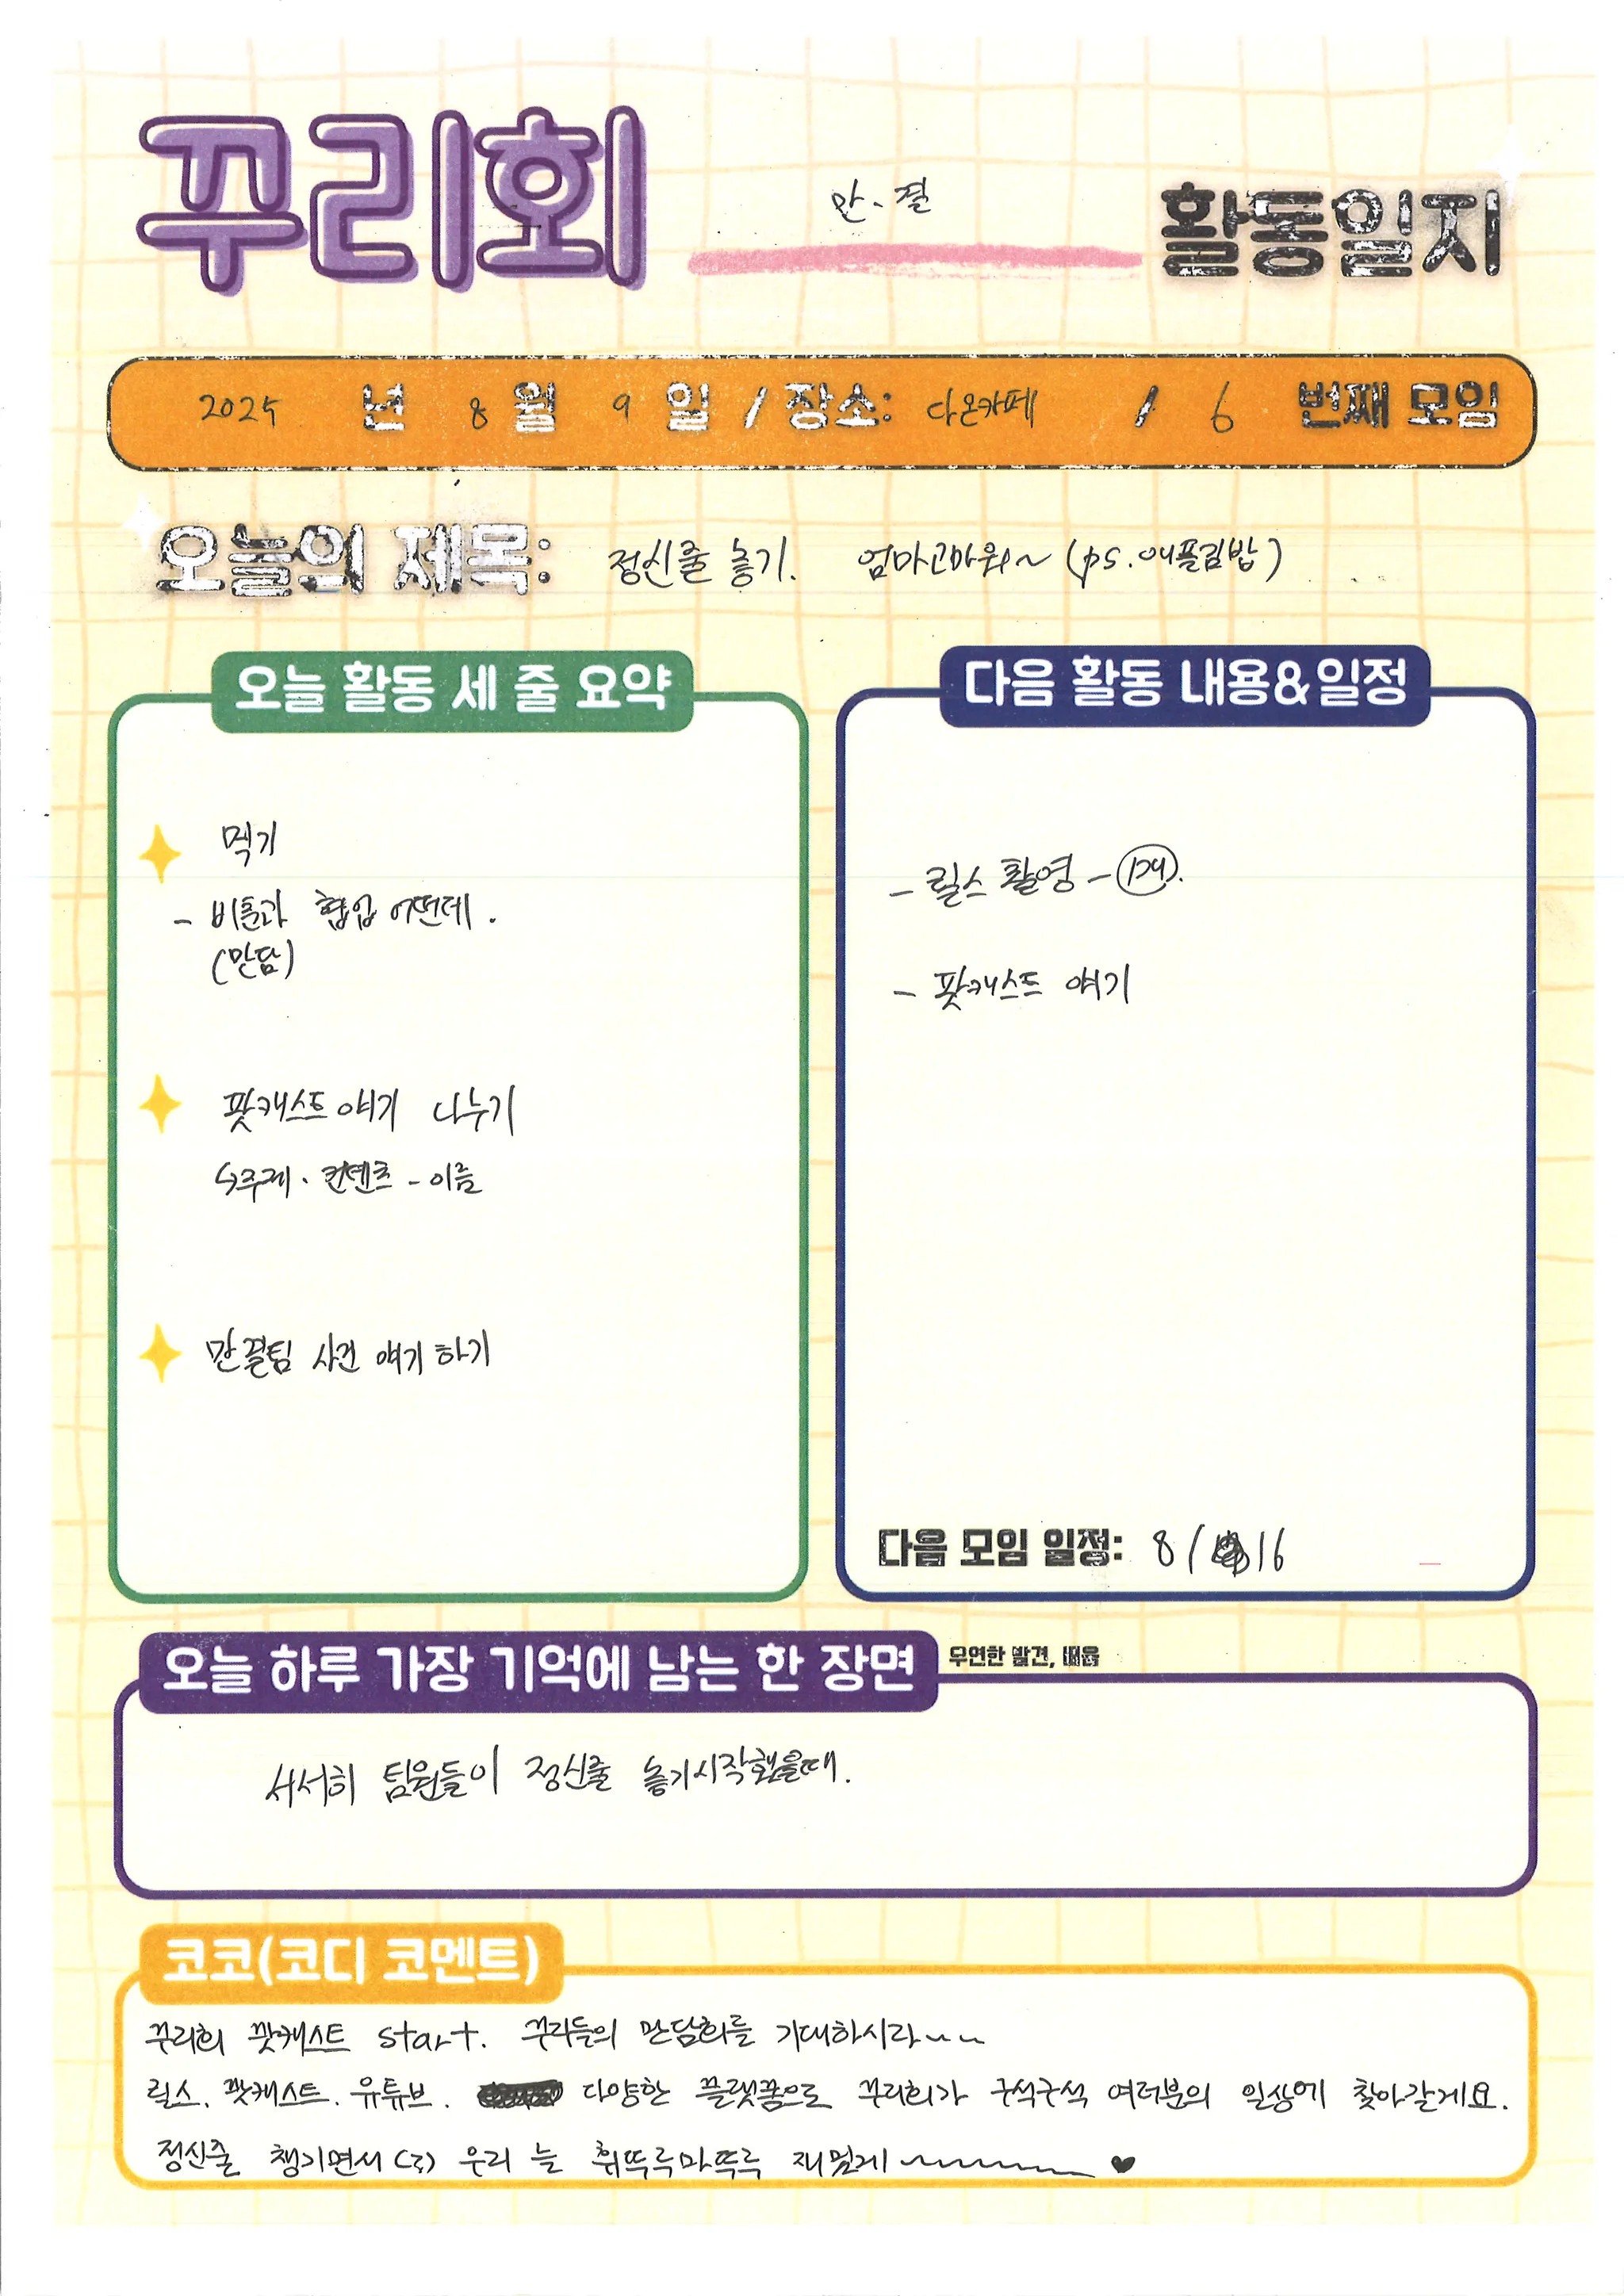 꾸리회 만.끌 활동일지
2025 년 8 월 9 일 / 장소: 다온카페 / 6 번째 모임
오늘의 제목: 정신줄 놓기. 엄마고마워~ (ps.애플김밥)
오늘 활동 세 줄 요약
먹기
- 비튬과 협업 어떤데.
(만담)
팟캐스트 얘기 나누기
↳주제 · 컨텐츠 - 이름
만끌팀 사건 얘기 하기
다음 활동 내용&일정
- 릴스 촬영 -
- 팟캐스트 얘기
다음 모임 일정: 8/16
오늘 하루 가장 기억에 남는 한 장면 우연한 발견, 배움
서서히 팀원들이 정신줄 놓기시작했을때.
코코(코디 코멘트)
꾸리회 팟캐스트 start. 꾸리들의 만담회를 기대하시라~~
릴스. 팟캐스트. 유튜브. 다양한 플랫폼으로 꾸리회가 구석구석 여러분의 일상에 찾아갈게요.
정신줄 챙기면서(?) 우리 늘 휘뚜루마뚜루 재밌게~~~~ ♥